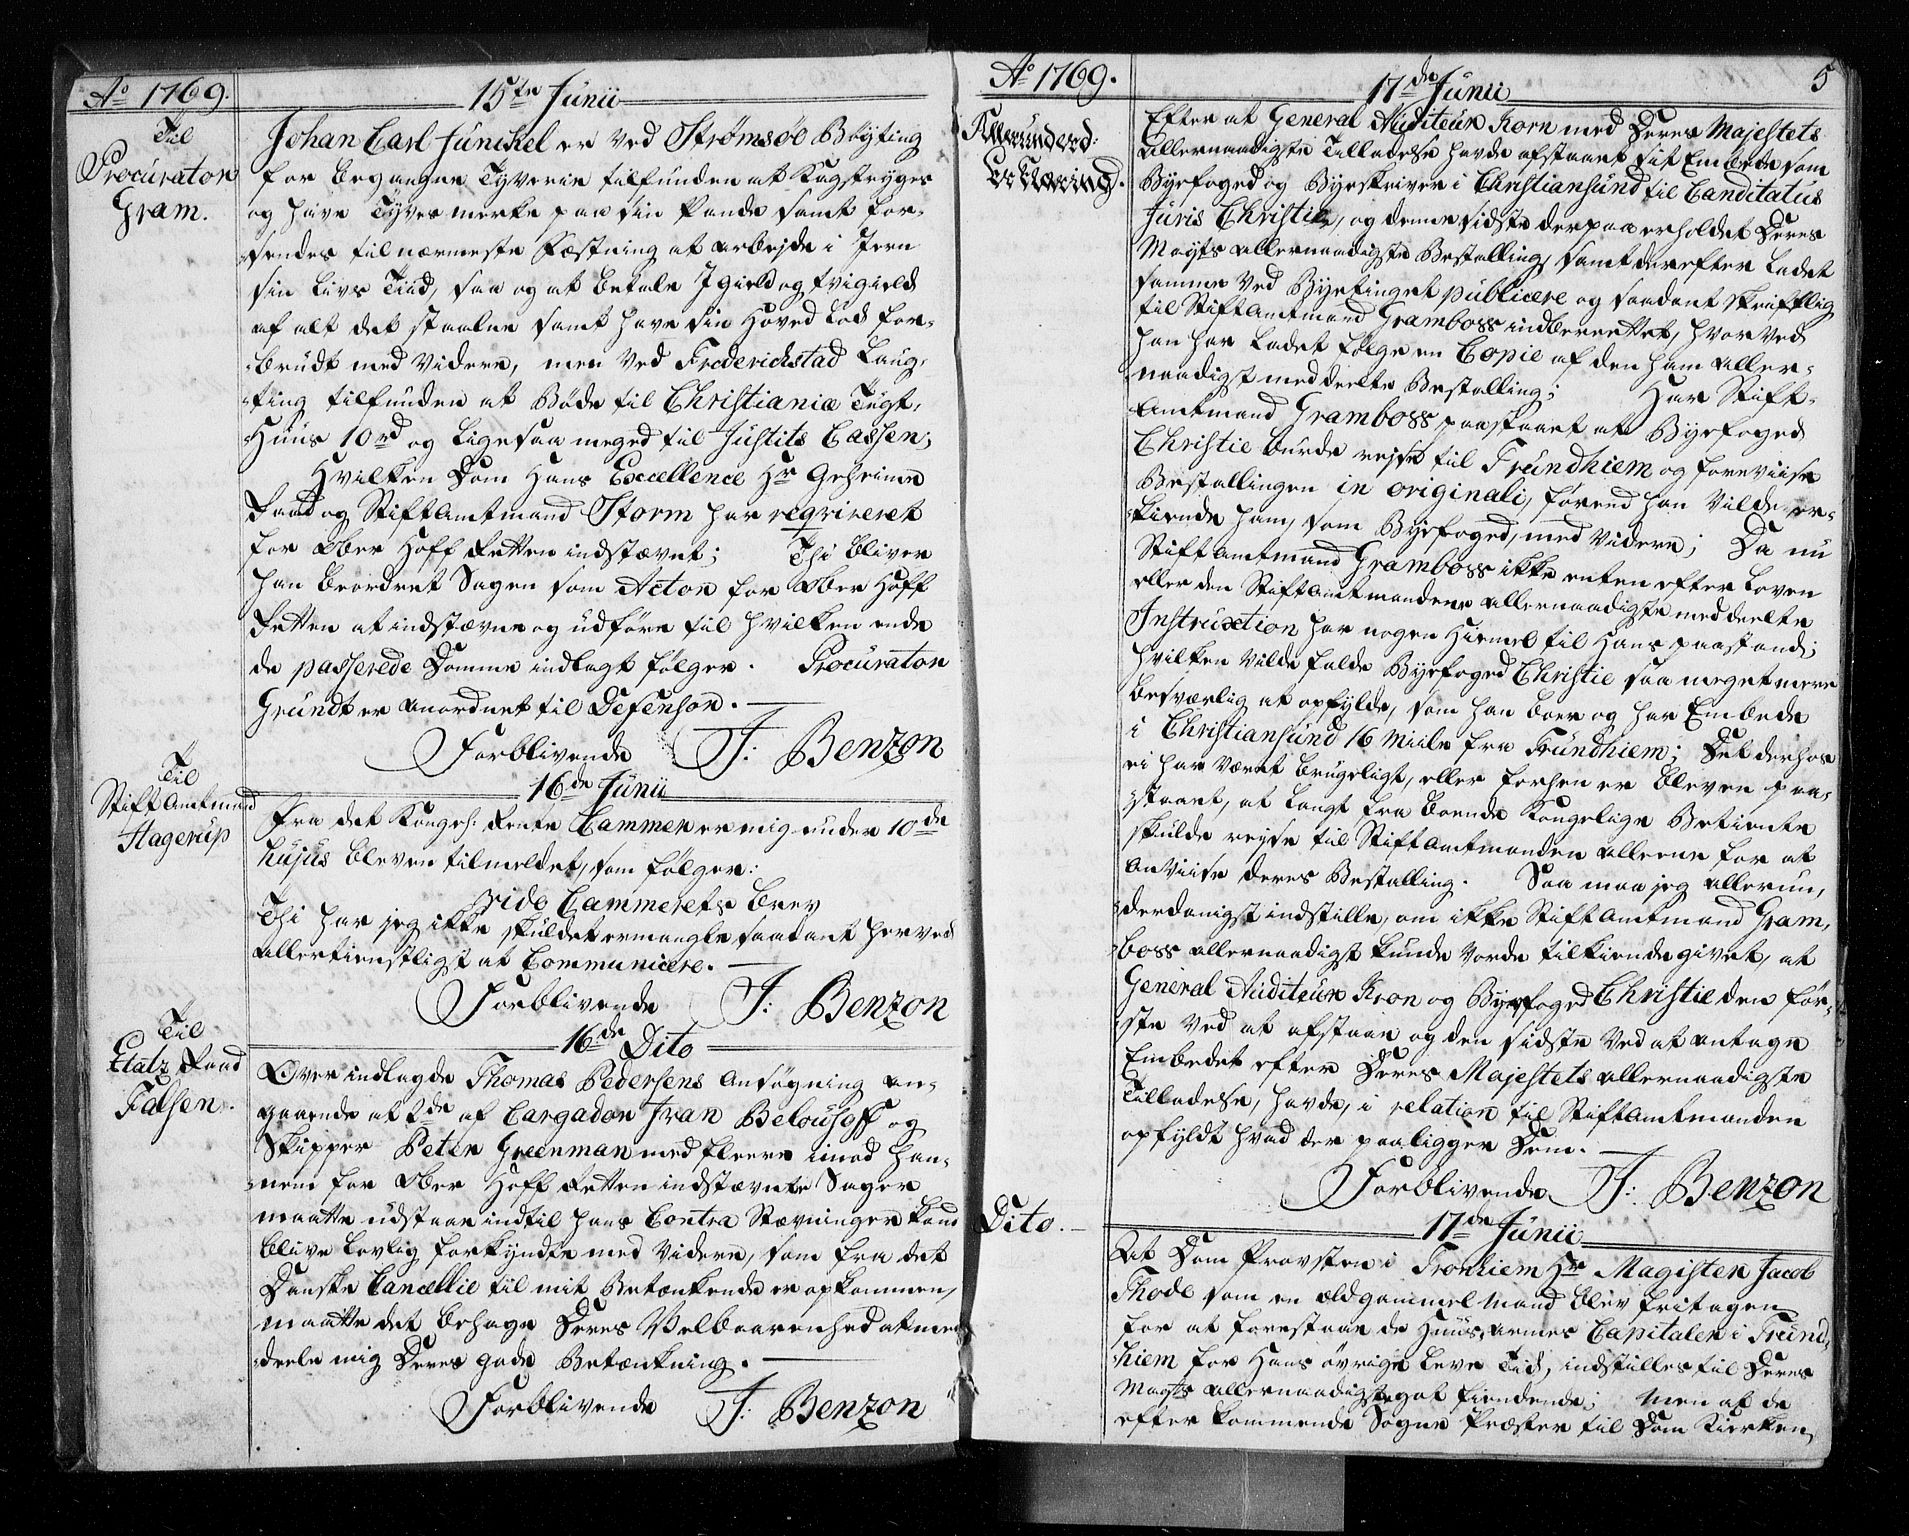 Ao 1769.
15te Junii
Til
Procurator
Gram.
Johan Carl Junckel er ved Strømsøe Bøyting
for begangne Tyverie tilfunden at Kagstryges
og have Tyvs merke paa sin Pande samt for-
sendes til nærmeste Fæstning at arbejde i Jern
sin Livs Tiid, saa og at betale Igield og tvigield
af alt det staalne samt have sin Hoved Lod for-
brudt med videre, men ved Friderichstad Laug-
ting tilfunden at Bøde til Christianiæ Tugt-
Huus 10rd og ligesaa meged til Justits Cassen;
Hvilken Dom Hans Excellence Hr Geheime
Raad og Stiftamtmand Storm har reqvireret
for Ober Hoff Retten indstævnet; Thi bliver
han beordret Sagen som Actor for Ober Hoff
Retten at indstævne og udføre til hvilken ende
de passerede Domme indlagt følger. Procurator
Grundt er anordnet til Defensor.
Forblivende J: Benzon
16de Junii
Til
Stiftamtmand
Hagerup
Fra det Kongel: Rente Cammer er mig under 10de
hujus bleven tilmeldet, som følger:
vide Cammerets brev
Thi har jeg ikke skuldet ermangle saadant herved
allertienstligst at Communicere.
Forblivende J: Benzon
16de Dito
Til
Etatz Raad
Falsen.
Over indlagde Thomas Pedersens ansøgning an-
gaaende at 2de af Cargador Ivan Belousoff og
Skipper Peter Greenman med fleere imod ham-
nem for Ober Hoff Retten indstævnte Sager
maatte udstaae indtil hans Contra Stævninger kand
blive lovlig forkyndte med videre, som fra det
Danske Cancellie til mit Betænkende er opkommen,
maatte det behage Deres Velbaarenhed at med-
deele mig Deres gode Betænkning.
Forblivende J: Benzon
Ao 1769.
17de Junii
5
Allerunderd:
Erklæring.
Efter at General Auditeur Korn med Deres Majestets
allernaadigste Tilladelse havde afstaaet sit Embede som
Byefoged og Byeskriver i Christiansund til Canditatus
Juris Christie, og denne sidste derpaa erholdet Deres
Mayts allernaadigste Bestalling, samt derefter ladet
samme ved Byetinget publicere og saadant skriftlig
til Stiftamtmand Gramboss indberettet, hvorved
han har ladet følge en Copie af den ham aller-
naadigst meddeelte Bestalling; Har Stift-
Amtmand Gramboss paastaaet at Byefoged
Christie burde rejse til Trundhiem og foreviise
Bestallingen in originali, førend han vilde er-
kiende ham, som Byefoged, med videre; Da nu
Stiftamtmand Gramboss ikke enten efter Loven
eller den Stiftamtmændene allernaadigste meddeelte
Instruction har nogen Hiemel til Hans paastand;
hvilken vilde falde Byefoged Christie saa meget mere
besværlig at opfylde, som han boer og har Embede
i Christiansund 16 Miile fra Trundhiem; Det derhos
ei har været brugeligt, eller forhen er bleven paa-
staaet, at langt fra boende Kongelige Betiente
skulde rejse til Stiftamtmanden alleene for at
anviise deres Bestalling. Saa maa jeg allerun-
derdanigst indstille, om ikke Stiftamtmand Gram-
boss allernaadigst kunde vorde tilkiende givet, at
General Auditeur Kron og Byefoged Christie den før-
ste ved at afstaae og den sidste ved at antage
Embedet efter Deres Majestets allernaadigste
Tilladelse, havde, i relation til Stiftamtmanden
opfyldt hvad der paaligger Dem.
Forblivende J: Benzon
17de Junii
Dito.
At Dom Provsten i Tronhiem Hr Magister Jacob
Thode som en ældgammel Mand blev fritagen
for at forestaae de Huus-armes Capitaler i Trund-
hiem for Hans øvrige Leve Tid, indstilles til Deres
Mayts allernaadigste got findende; Men at de
efterkommende Sogne Præster til Dom Kierken,